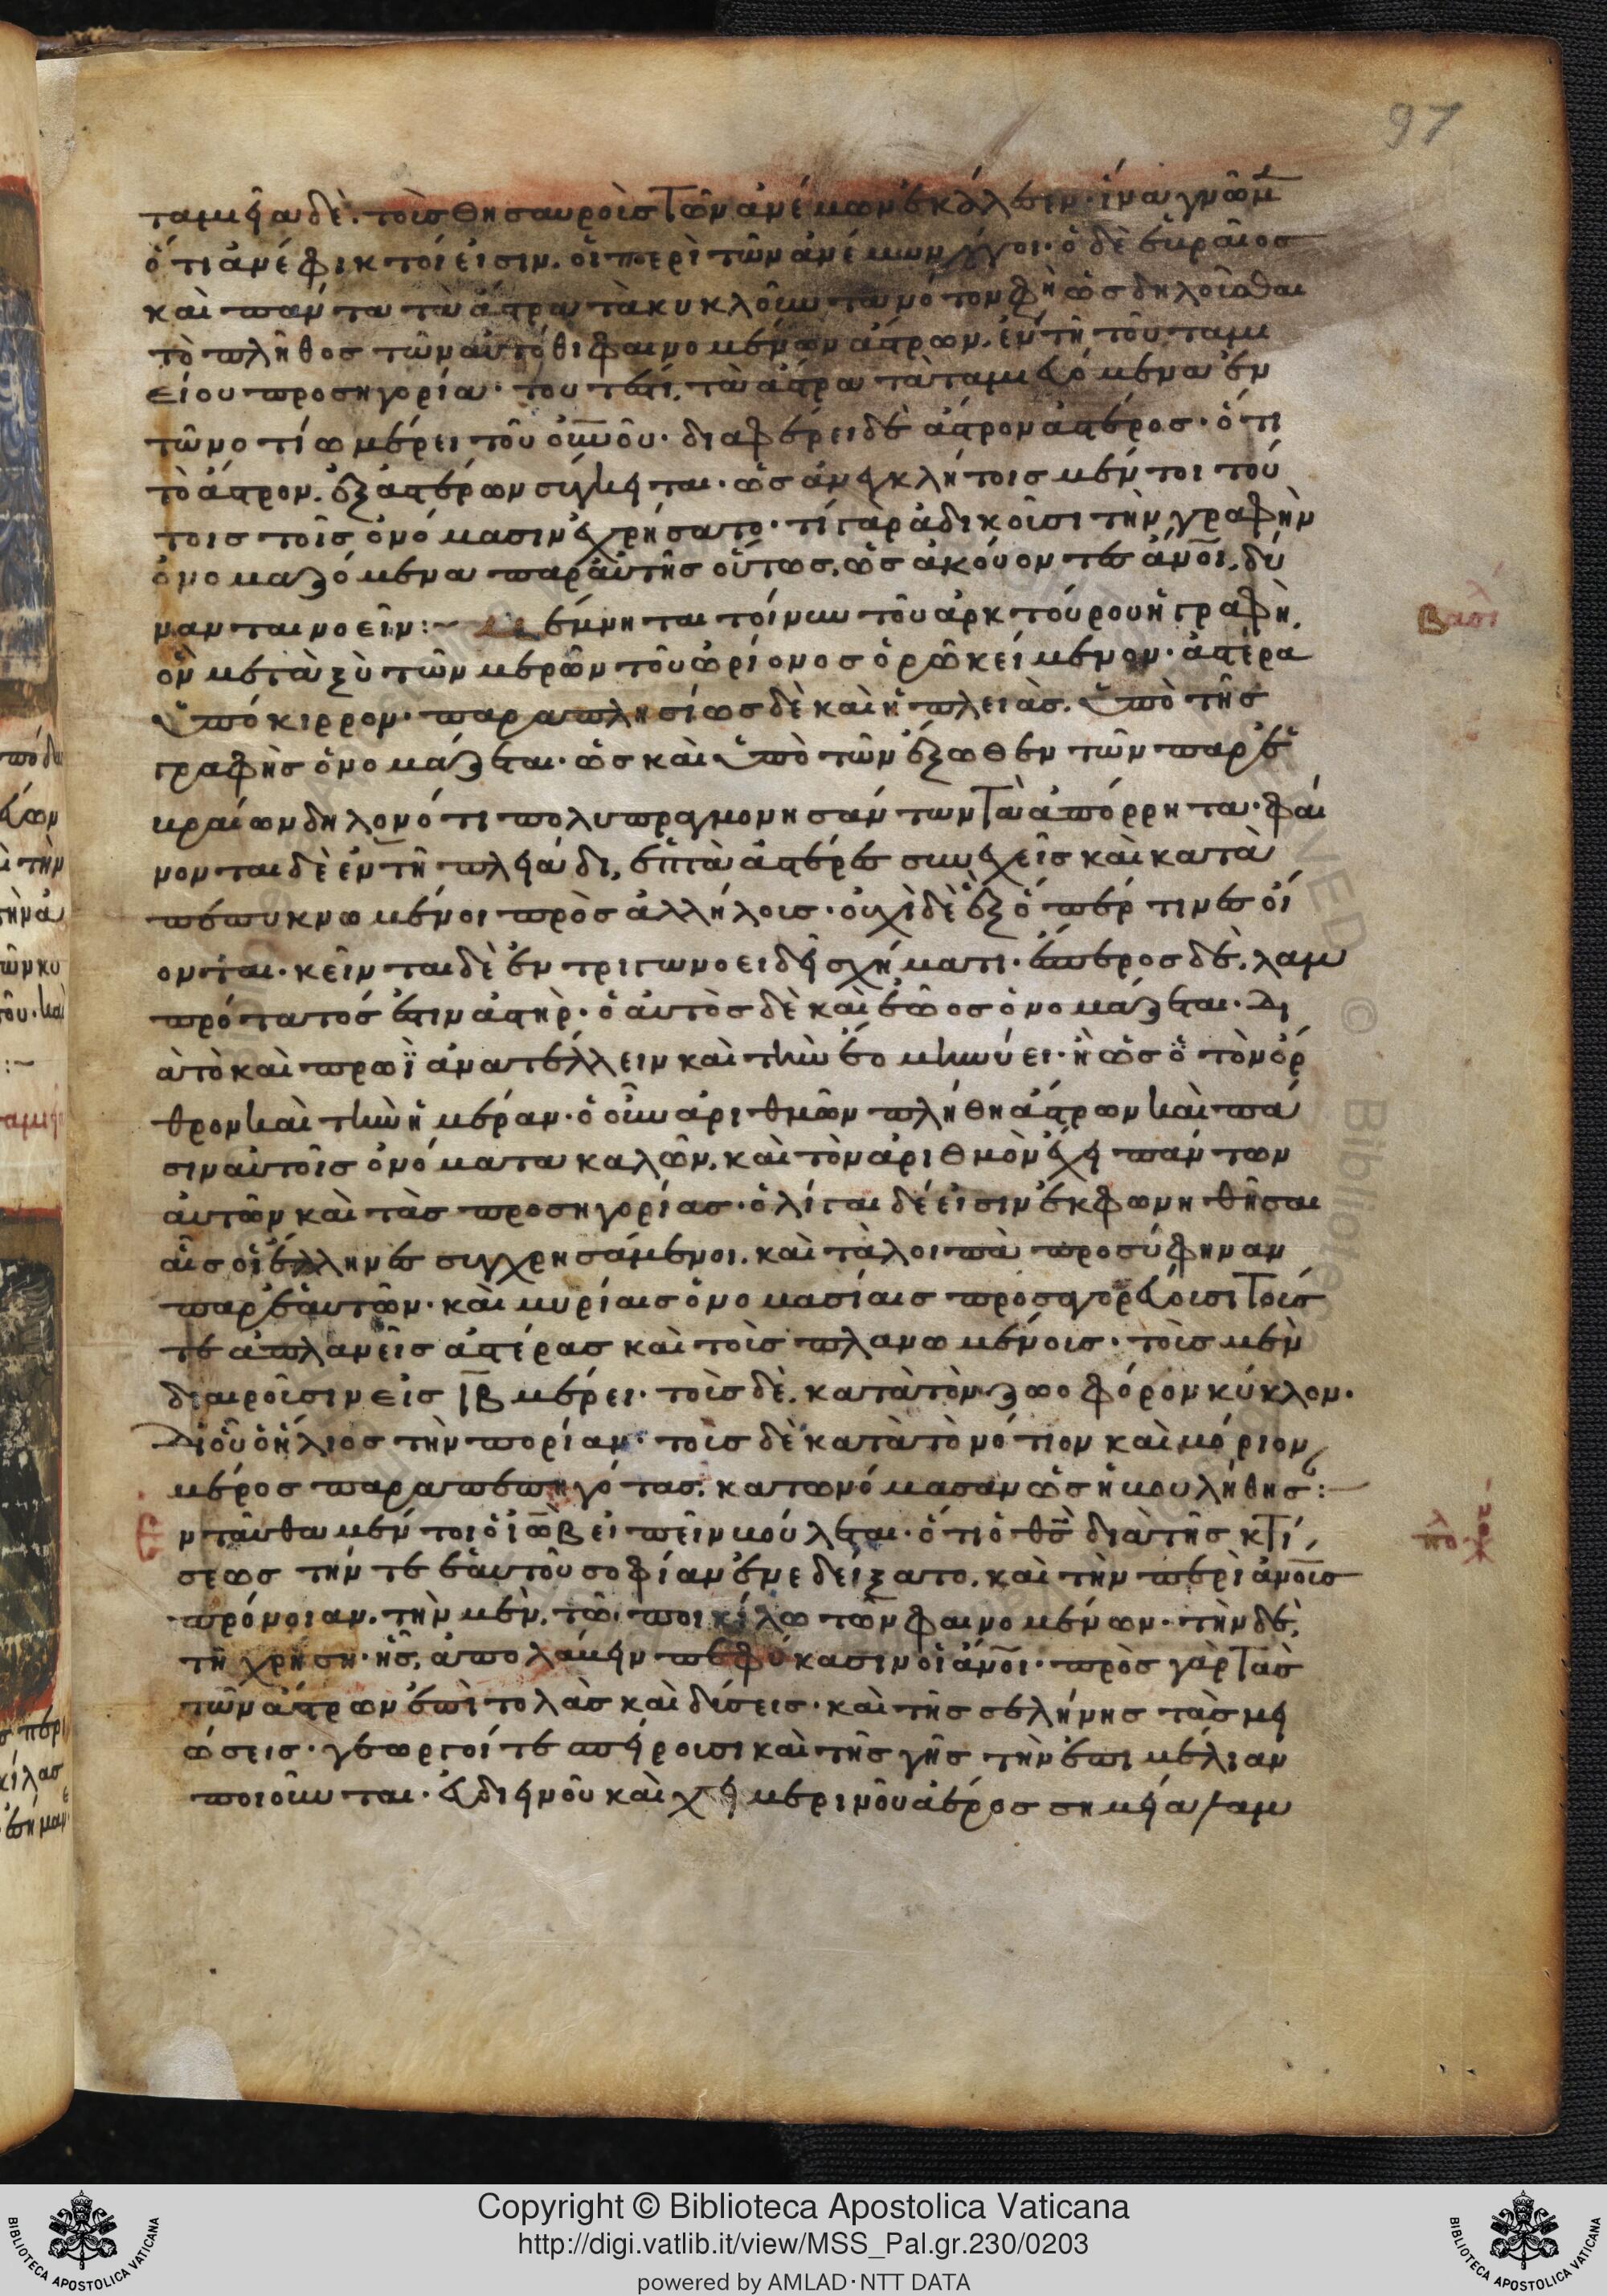 97
ταμεῖα δὲ. τοὺς θησαυροὺς τῶν ἀνέμων ἐκάλεσεν. ἵνα γνῶμ
ὅτι ἀνέφικτοί εἰσιν. οἱ περὶ τῶν ἀνέμων λόγοι. ὁ δὲ ἑβραῖος
καὶ πάντα τὰ ἄστρα τὰ κυκλοῦντα νότον φὴ ὡς δηλοῦσθαι
τὸ πλῆθος τῶν αὐτόθι φαινομένων ἄστρων. ἐν τῆ τοῦ ταμι
είου προσηγορία. τουτέστι, τὰ ἄστρα τὰ ταμιευόμενα ἐν
τῶ νοτίω μέρει τοῦ οὐνοῦ. διαφέρει δὲ ἄστρον ἀστέρος. ὅτι
τὸ ἄστρον. ἐξ ἀστέρων σύγκειται. ὡς ἀνεγκλήτοις μέντοι τού
τοις τοῖς ὀνόμασιν ἐχρήσατο. τί γὰρ ἀδικοῦσι τὴν γραφὴν
ὀνομαζόμενα παρ' αὐτῆς οὕτως, ὡς ἀκούοντες ἄνοι, δύ
νανται νοεῖν:~ μέμνηται τοίνυν τοῦ ἀρκτούρου ἡ γραφὴ.
ὃν μεταξὺ τῶν μερῶν τοῦ ὠρίονος ὁρῶ κείμενον. ἀστέρα
ὑπόκιρρον. παραπλησίως δὲ καὶ ἡ πλειὰς. ὑπὸ τῆς
γραφῆς ὀνομάζεται. ὡς καὶ ὑπὸ τῶν ἔξωθεν τῶν παρ' ἑ
βραίων δηλονότι πολυπραγμονησάντων τὰ ἀπόρρητα. φαί
νονται δὲ ἐν τῆ πλειάδι, ἑπτὰ ἀστέρες συνεχεῖς καὶ κατα
πεπυκνωμένοι πρὸς ἀλλήλοις. οὐχὶ δὲ ἐξ ὅπέρ τινες οἴ
ονται. κεῖνται δὲ ἐν τριγωνοειδεῖ σχήματι. ἕσπερος δὲ, λαμ
πρότατός ἐστιν ἀστὴρ. ὁ αὐτὸς δὲ καὶ ἑῶος ὀνομάζεται. δι
ὰ τὸ καὶ πρωῒ ἀνατέλλειν καὶ τὴν ἕω μηνύει. ἢ ὡς ὃ τὸν ὄρ
θρον καὶ τὴν ἡμέραν. ὁ οὖν ἀριθμῶν πλήθη ἄστρων καὶ πᾶ
σιν αὐτοῖς ὀνόματα καλῶν, καὶ τὸν ἀριθμὸν ἔχει πάντων
αὐτῶν καὶ τὰς προσηγορίας. ὀλίγαι δέ εἰσιν ἐκφωνηθῆσαι
αἷς οἱ ἕλληνες συγχρησάμενοι. καὶ τὰ λοιπὰ προσύφηναν
παρ' ἑαυτῶν. καὶ μυρίαις ὀνομασίαις προσαγορεύουσι τούς
τε ἀπλανεῖς ἀστέρας καὶ τοὺς πλανωμένους. τοὺς μὲν
διαιροῦσιν εἰς ιβ μέρει. τοὺς δὲ. κατὰ τὸν ζωοφόρον κύκλον.
δι' οὗ ὁ ἥλιος τὴν πορίαν. τοὺς δὲ κατὰ τὸ νότιον καὶ βόριον
μέρος παραπεπηγότας. κατωνόμασαν ὡς ἠβουλήθης:
νταῦθα μέντοι ὁ ἰὼβ εἰπεῖν βούλεται. ὅτι ὁ θς διὰ τῆς κτί
σεως τήν τε ἑαυτοῦ σοφίαν ἐνεδείξατο. καὶ τὴν περὶ ἀνους
πρόνοιαν. τὴν μὲν. τῶ ποικίλω τῶν φαινομένων. τὴν δὲ,
τῆ χρήσει. ἧς, ἀπολαύειν πεφύκασιν οἱ ἄνοι. πρὸς γὰρ τὰς
τῶν ἄστρων ἐπιτολὰς καὶ δύσεις. καὶ τῆς σελήνης τὰς μει
ώσεις. γεωργοί τε σπείρουσι καὶ τῆς γῆς τὴν ἐπιμέλιαν
ποιοῦνται. εὐδιεινοῦ καὶ χειμερινοῦ ἀέρος σημεῖα λαμ
βασι
πολυχρ
Copyright © Biblioteca Apostolica Vaticana
http://digi.vatlib.it/view/MSS_Pal.gr.230/0203
powered by AMLAD·NTT DATA
BIBLIOTECA APOSTOLICA VATICANA
BIBLIOTECA APOSTOLICA VATICANA